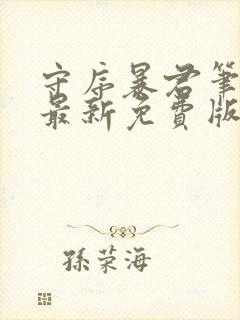 守序暴君笔
最新免費版
孫荣海